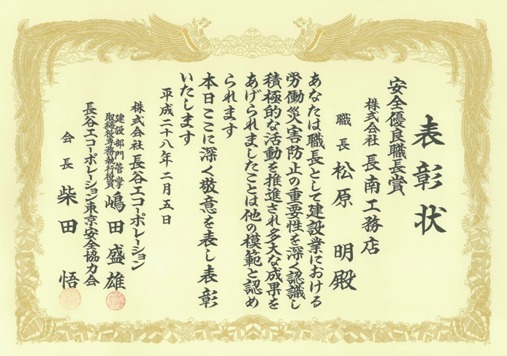 表彰状
安全優良職長賞
株式会社 長南工務店
職長 松原 明 殿
あなたは職長として建設業における
労働災害防止の重要性を深く認識し
積極的な活動を推進され多大な成果を
あげられましたことは他の模範と認め
られます
本日ここに深く敬意を表し表彰
いたします
平成二十八年二月五日
株式会社 長谷工コーポレーション
建設部門管掌
取締役専務執行役員 嶋田盛雄
長谷工コーポレーション東京・安全協力会
会長 柴田 悟